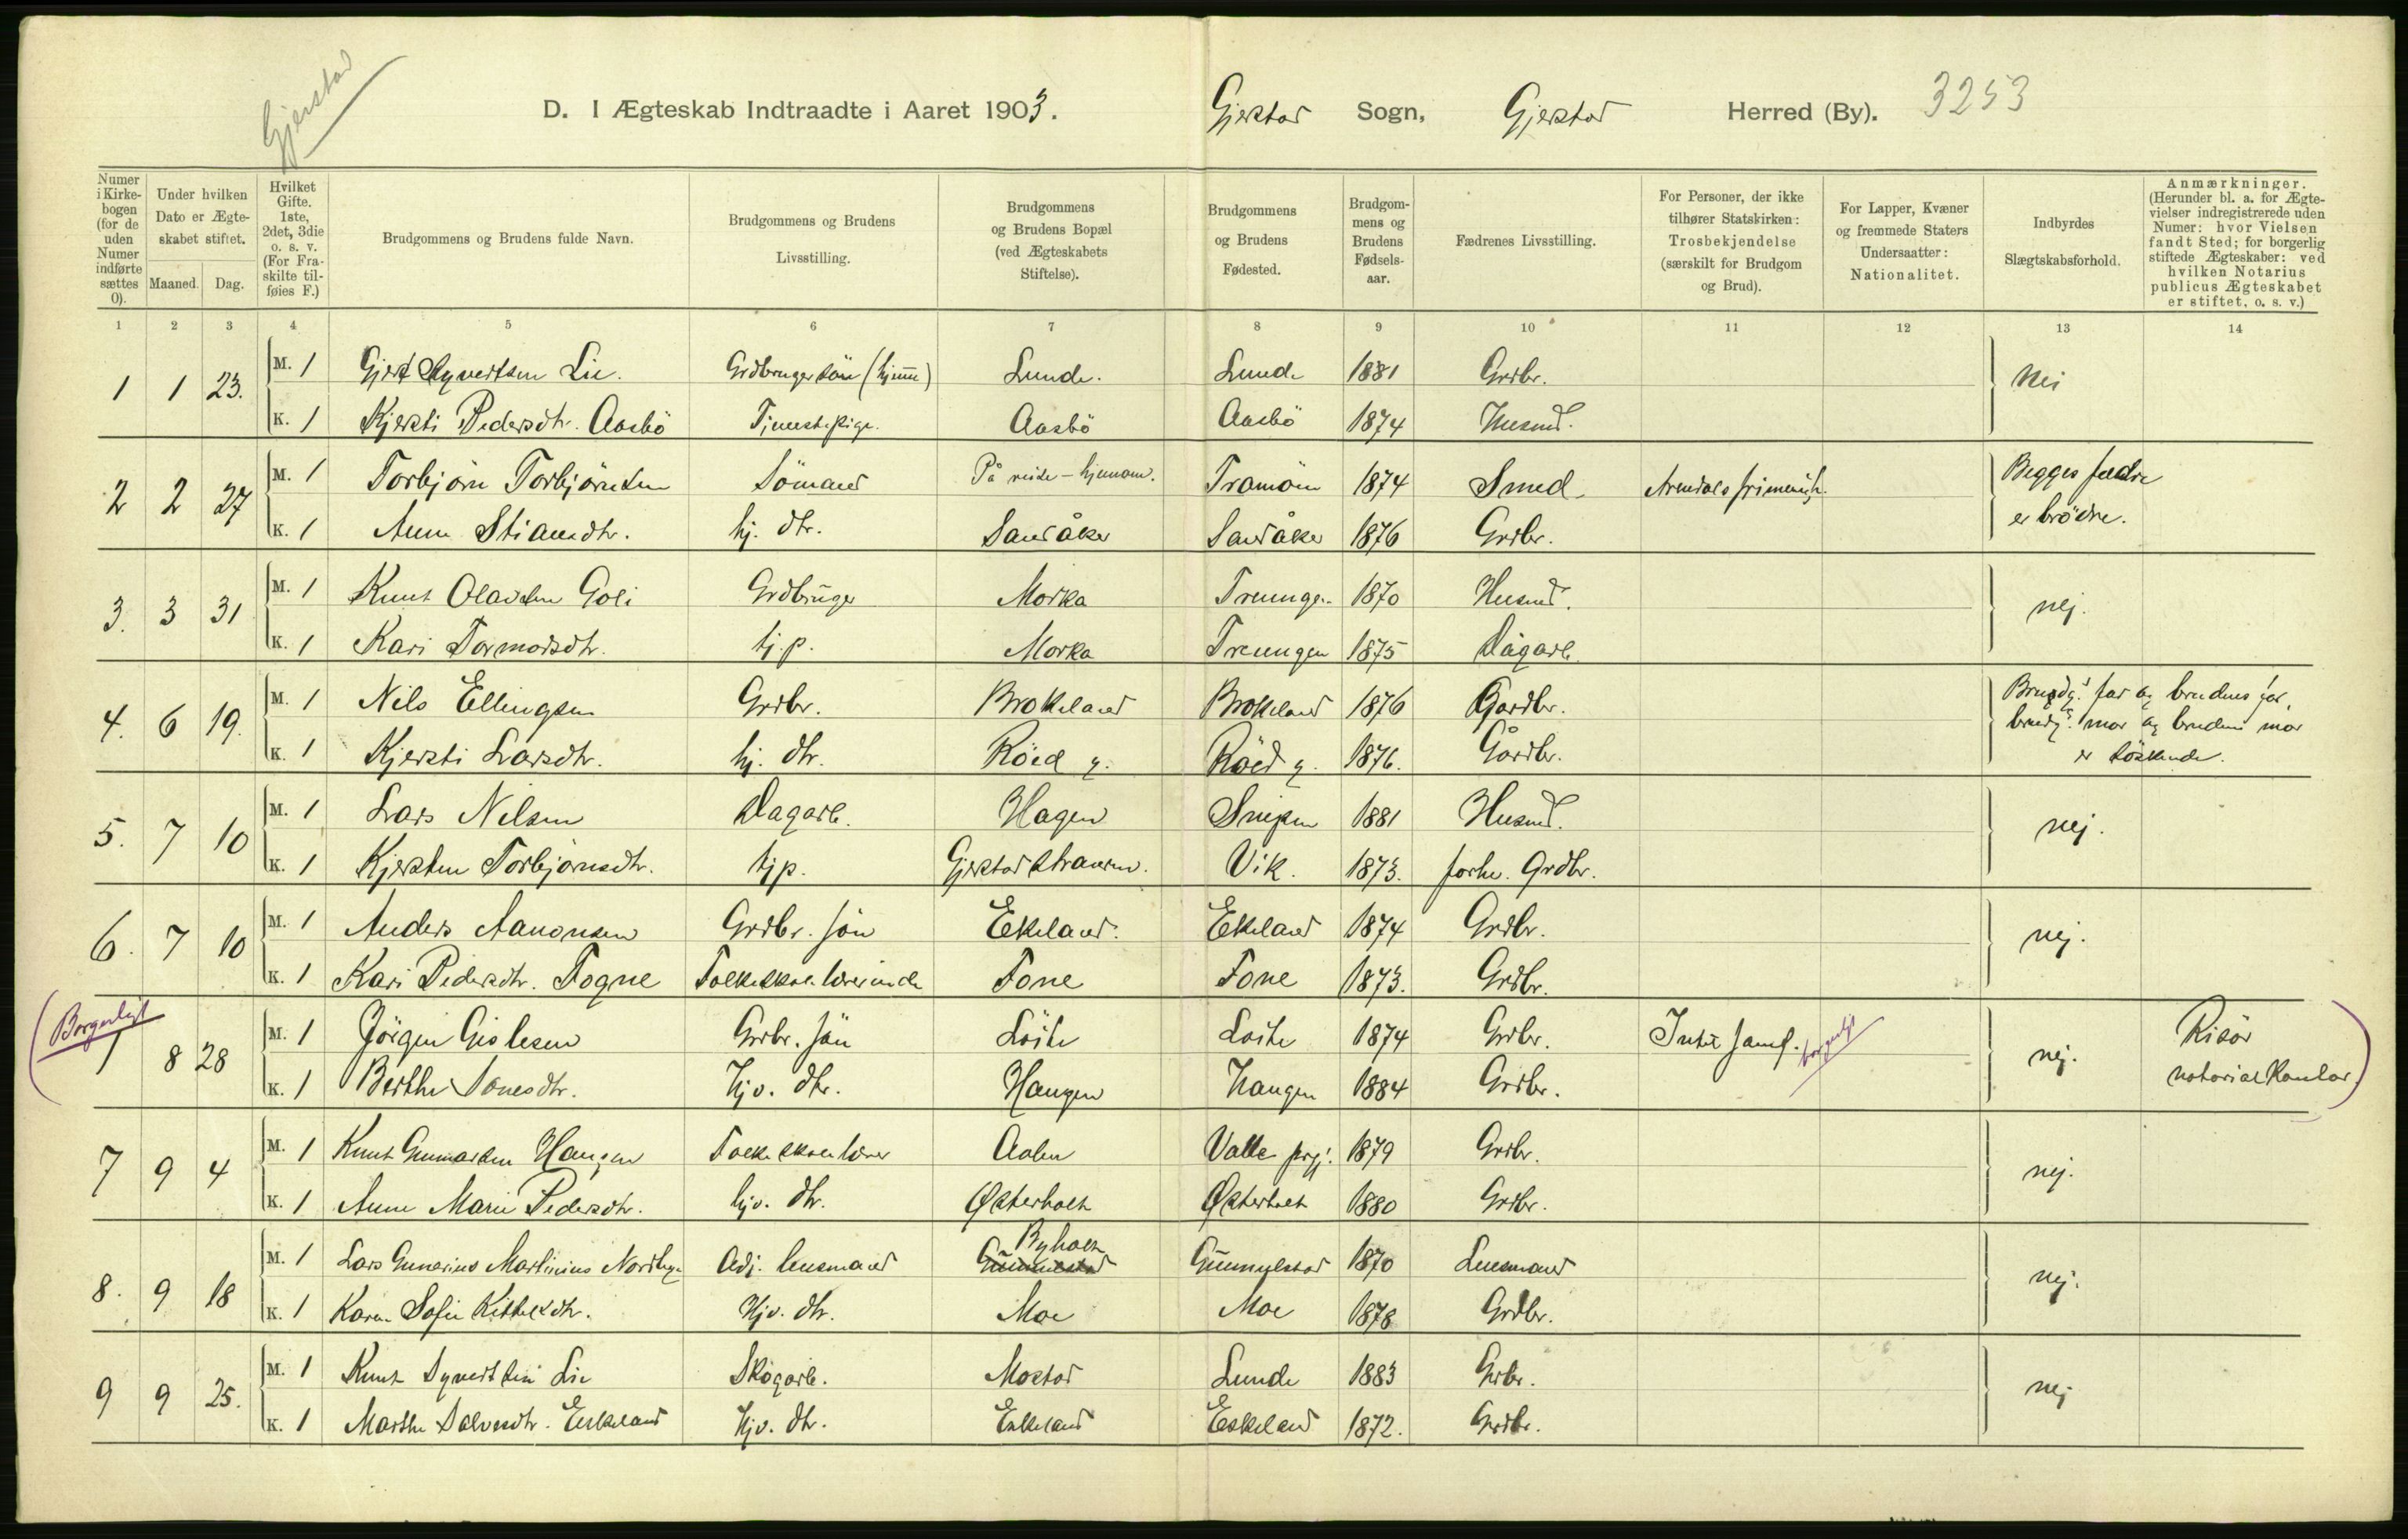 Gjerstad
D. I Ægteskab Indtraadte i Aaret 1903. Gjerstad Sogn, Gjerstad Herred (By). 3253
Numer i Kirkebogen (for de uden Numer indførte sættes 0).
Under hvilken Dato er Ægteskabet stiftet.
Maaned. Dag.
Hvilket Gifte. 1ste, 2det, 3die o. s. v. (For Fraskilte tilføies F.)
Brudgommens og Brudens fulde Navn.
Brudgommens og Brudens Livsstilling.
Brudgommens og Brudens Bopæl (ved Ægteskabets Stiftelse).
Brudgommens og Brudens Fødested.
Brudgommens og Brudens Fødselsaar.
Fædrenes Livsstilling.
For Personer, der ikke tilhører Statskirken: Trosbekjendelse (særskilt for Brudgom og Brud).
For Lapper, Kvæner og fremmede Staters Undersaatter: Nationalitet.
Indbyrdes Slægtskabsforhold.
Anmærkninger. (Herunder bl. a. for Ægtevielser indregistrerede uden Numer: hvor Vielsen fandt Sted; for borgerlig stiftede Ægteskaber: ved hvilken Notarius publicus Ægteskabet er stiftet, o. s. v.)
1 2 3 4 5 6 7 8 9 10 11 12 13 14
1 1 23. M. 1 Gjert Syvertsen Lie. Grdbrugersön (hjemme) Lunde. Lunde 1881 Grdbr. Nei
K. 1 Kjersti Pedersdtr. Aasbö Tjenestepige. Aasbö Aasbö 1874 Husmd.
2 2 27 M. 1 Torbjörn Torbjörnsen Sömand På reise - hjemom. Tromöen 1874 Smed. Arendals frimenigh. Begges fædre
K. 1 Anne Stiansdtr. hj. dtr. Sandåker Sandåker 1876 Grdbr. er brödre.
3. 3 31 M. 1 Knut Olavsen Goli Grdbruger Morka Treungen 1870 Husmd. nej.
K. 1 Kari Tormodsdtr. tj. p. Morka Treungen 1875 Dagarb.
4. 6 19. M. 1 Nils Ellingsen Grdbr. Brokeland Brokeland 1876 Gardbr. Brudg.s far og brudens far,
brudg.s mor og brudens mor
K. 1 Kjersti Larsdtr. hj. dtr. Röed y. Röed y. 1876. Gårdbr. er söskende.
5. 7 10 M. 1 Lars Nilsen Dagarb. Hagen Snipen 1881 Husmd. nej.
K. 1 Kjersten Torbjörnsdtr. tjp. Gjerstadstranden. Vik. 1873. forhv. Grdbr.
6. 7 10 M. 1 Anders Aanonsen Grdbr. sön Ekeland. Ekeland 1874 Grdbr. nej.
K. 1 Kari Pedersdtr. Fogne Folkeskolelærerinde Fone Fone 1873. Grdbr.
(Borgerligt
1 8 28 M. 1 Jörgen Gislesen Grdbr. sön Löite Loite 1874 Grdbr. Intet samf. borgerligt nej. Risör
K. 1 Berthe Tonesdtr. Hjv. dtr. Haugen Haugen 1884 Grdbr. notarialkontor.)
7 9 4 M. 1 Knut Gunnarsen Haugen Folkeskolelærer Aalen Valle prgj. 1879 Grdbr. nej.
K. 1 Anne Marie Pedersdtr. hjv. dtr. Østerholt Østerholt 1880 Grdbr.
Byholt
8. 9 18 M. 1 Lars Gunerius Martinius Nordby Adj. lensmand Gunnulstad 1870 Lensmand nej.
K. 1 Karen Sofie Kittelsdtr. Hjv. dtr. Moe Moe 1878 Grdbr.
9 9 25. M. 1 Knut Syvertsen Lie Skogarb. Mostad Lunde 1883 Grbr. nej
K. 1 Marthe Salvesdtr. Eskeland Hjv. dtr. Eskeland Eskeland 1872. Grdbr.